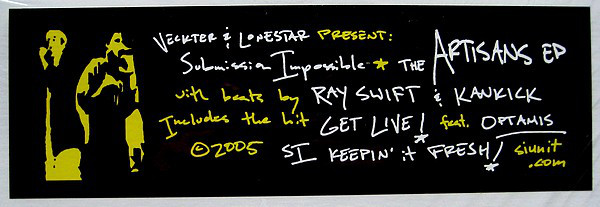 Veckter & Lonestar PRESENT:
Submission Impossible * THE ARTISANS EP
with beats by RAY SWIFT & KANKICK
Includes the hit GET LIVE! feat. OPTAMIS
©2005 SI KEEPIN' it FRESH! siunit.com